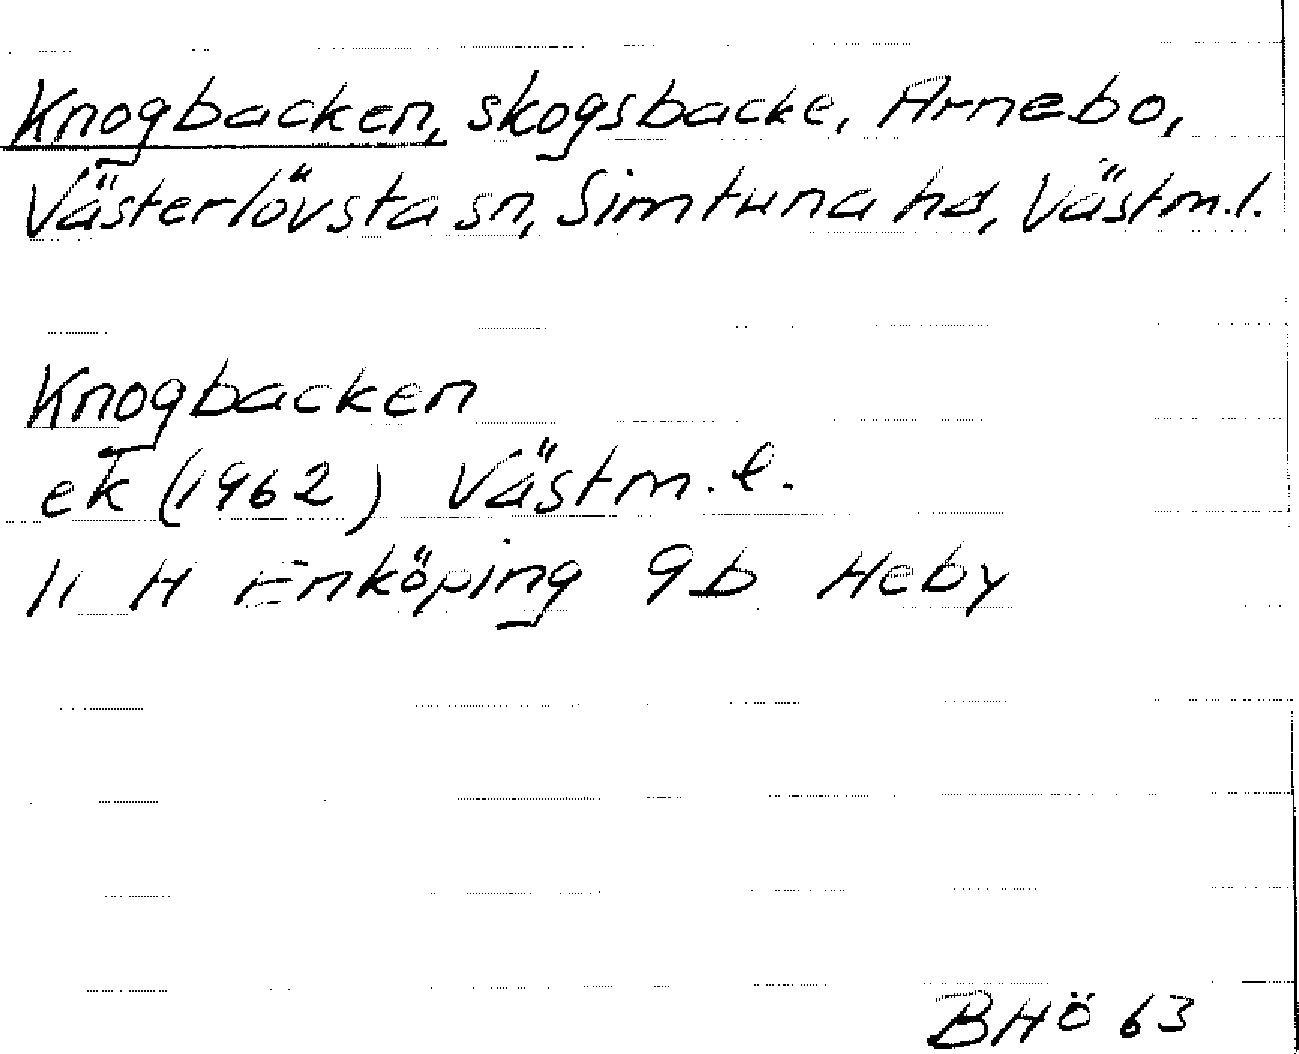 Knogbacken, skogsbacke, Arnebo,
Västerlövsta sn, Simtuna hd, Västm.l.
Knogbacken
ek (1962) Västm.l.
11 H Enköping 9b Heby
BHÖ 63